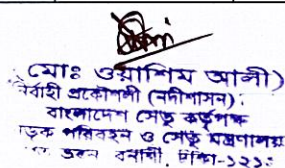 মোঃ ওয়াশিম আলী)
নির্বাহী প্রকৌশলী (নদীশাসন)
বাংলাদেশ সেতু কর্তৃপক্ষ
সড়ক পরিবহন ও সেতু মন্ত্রণালয়
ভবন বনানী, ঢাকা-১২১